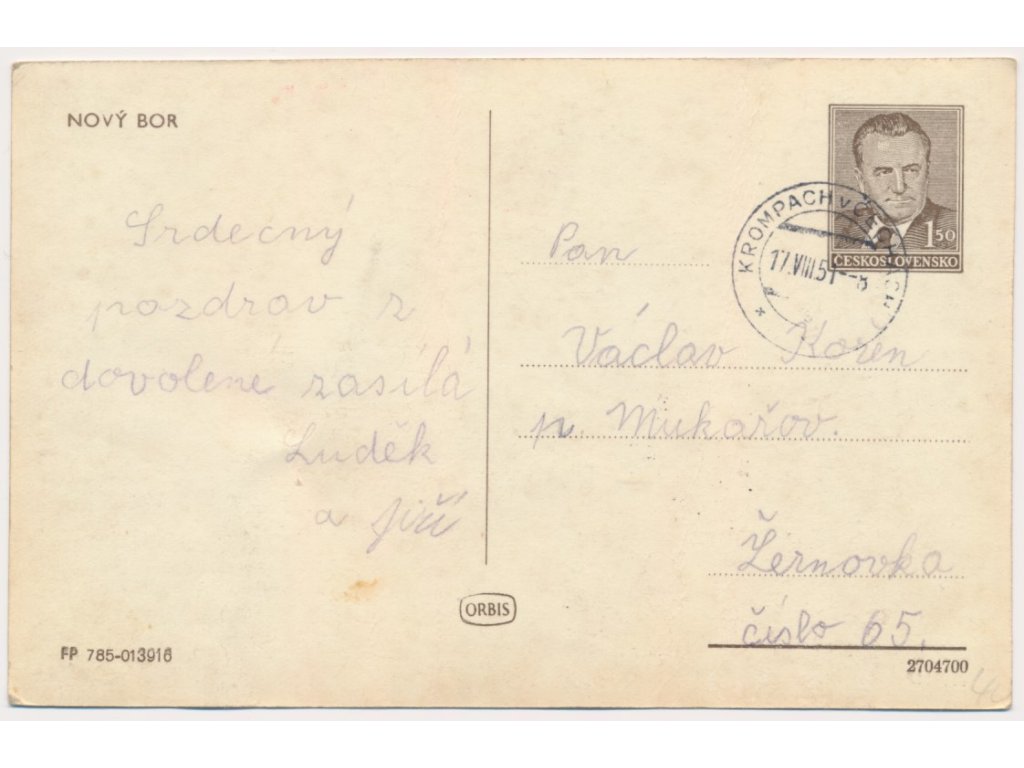 NOVÝ BOR
Srdecný
pozdrav z
dovolené zasílá
Luděk
a Jiří
FP 785-013916
ORBIS
1 50
ČESKOSLOVENSKO
KROMPACH v ČECHÁCH
17.VIII.51--8
Pan
Václav Koren
p. Mukařov.
Žernovka
číslo 65,
2704700